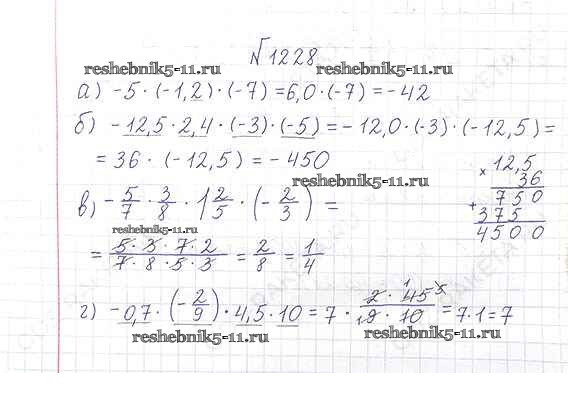 №1228
reshebnik5-11.ru reshebnik5-11.ru
а) -5 · (-1,2) · (-7) = 6,0 · (-7) = -42
б) -12,5 · 2,4 · (-3) · (-5) = -12,0 · (-3) · (-12,5) =
= 36 · (-12,5) = -450
× 12,5
36
reshebnik5-11.ru
750
+
375
4500
в) -5/7 · 3/8 · 1 2/5 · (-2/3) =
reshebnik5-11.ru
= 5·3·7·2/7·8·5·3 = 2/8 = 1/4
г) -0,7 · (-2/9) · 4,5 · 10 = 7 · 2·45/9·10 = 7·1 = 7
reshebnik5-11.ru